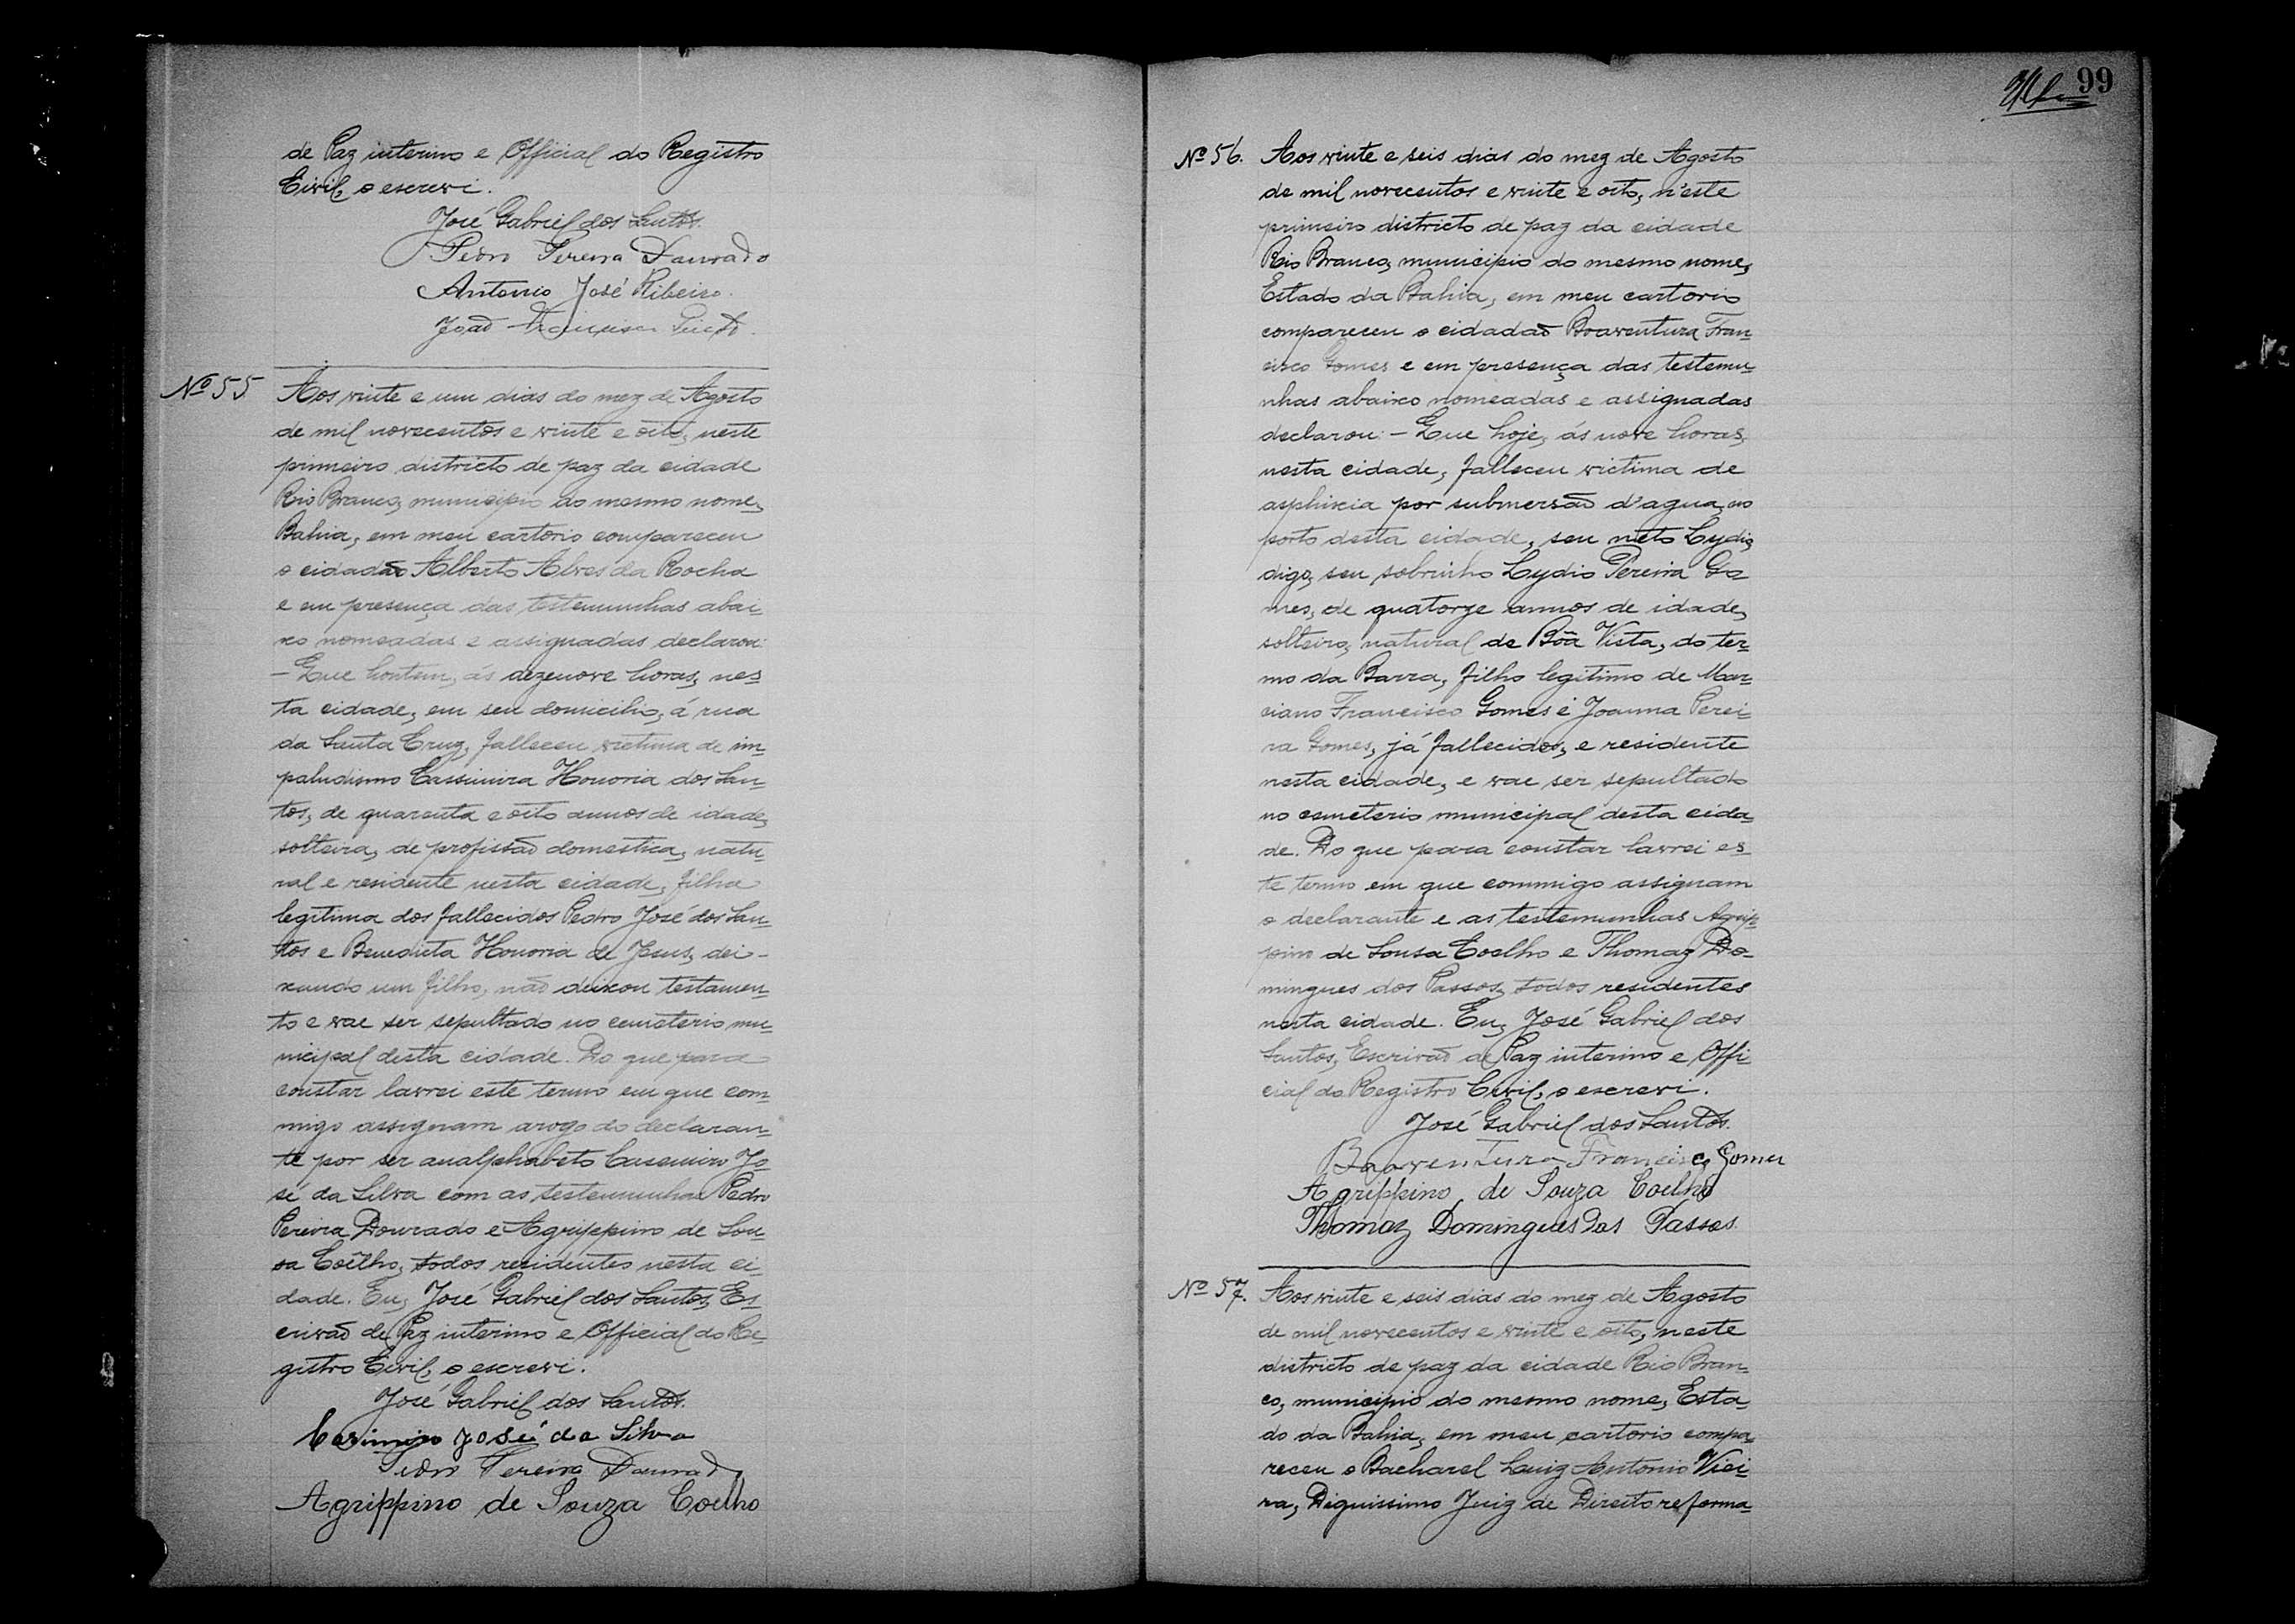 de Paz interino e Official do Registro
Civil, o escrevi.
José Gabriel dos Santos.
Pedro Pereira Dourado
Antonio José Ribeiro.
João Francisco
Nº 55 Aos vinte e um dias do mez de Agosto
de mil novecentos e vinte e oito, neste
primeiro districto de paz da cidade
Rio Branco, municipio do mesmo nome,
Bahia, em meu cartorio compareceu
o cidadão Alberto Alves da Rocha
e em presença das testemunhas abai-
xo nomeadas e assignadas declarou:
- Que hontem, ás dezenove horas, nes-
ta cidade, em seu domicilio, á rua
da Santa Cruz, falleceu victima de im-
paludismo Cassimira Honoria dos San-
tos, de quarenta e oito annos de idade,
solteira, de profissão domestica, natu-
ral e residente nesta cidade, filha
legitima dos fallecidos Pedro José dos San-
tos e Benedicta Honoria de Jesus, dei-
xando um filho, não deixou testamen-
to e vae ser sepultado no cemeterio mu-
nicipal desta cidade. Do que para
constar lavrei este termo em que com-
migo assignam arogo do declaran-
te por ser analphabeto Casemiro Jo-
sé da Silva com as testemunhas Pedro
Pereira Dourado e Agrippino de Sou-
sa Coêlho, todos residentes nesta ci-
dade. Eu, José Gabriel dos Santos, Es-
crivão de Paz interino e Official do Re-
gistro Civil, o escrevi.
José Gabriel dos Santos.
Casimiro José da Silva
Pedro Pereira Dourado
Agrippino de Souza Coelho
99
Nº 56. Aos vinte e seis dias do mez de Agosto
de mil novecentos e vinte e oito, n'este
primeiro districto de paz da cidade
Rio Branco, municipio do mesmo nome,
Estado da Bahia, em meu cartorio
compareceu o cidadão Boaventura Fran-
cisco Gomes e em presença das testemu-
nhas abaixo nomeadas e assignadas
declarou: - Que hoje, ás nove horas,
nesta cidade, falleceu victima de
asphixia por submersão d'agua, no
porto desta cidade, seu neto Lydio,
digo, seu sobrinho Lydio Pereira Go-
mes, de quatorze annos de idade,
solteiro, natural de Bôa Vista, do ter-
mo da Barra, filho legitimo de Mar-
ciano Francisco Gomes e Joanna Perei-
ra Gomes, já fallecidos, e residente
nesta cidade, e vae ser sepultado
no cemeterio municipal desta cida-
de. Do que para constar lavrei es-
te termo em que commigo assignam
o declarante e as testemunhas Agrip-
pino de Sousa Coelho e Thomaz Do-
mingues dos Passos, todos residentes
nesta cidade. Eu, José Gabriel dos
Santos, Escrivão de Paz interino e Offi-
cial do Registro Civil, o escrevi.
José Gabriel dos Santos.
Boaventura Francisco Gomes
Agrippino de Souza Coelho
Thomaz Domingues das Passos.
Nº 57. Aos vinte e seis dias do mez de Agosto
de mil novecentos e vinte e oito, neste
districto de paz da cidade Rio Bran-
co, municipio do mesmo nome, Esta-
do da Bahia, em meu cartorio compa-
receu o Bacharel Luiz Antonio Viei-
ra, Diguissimo Juiz de Direito reforma-